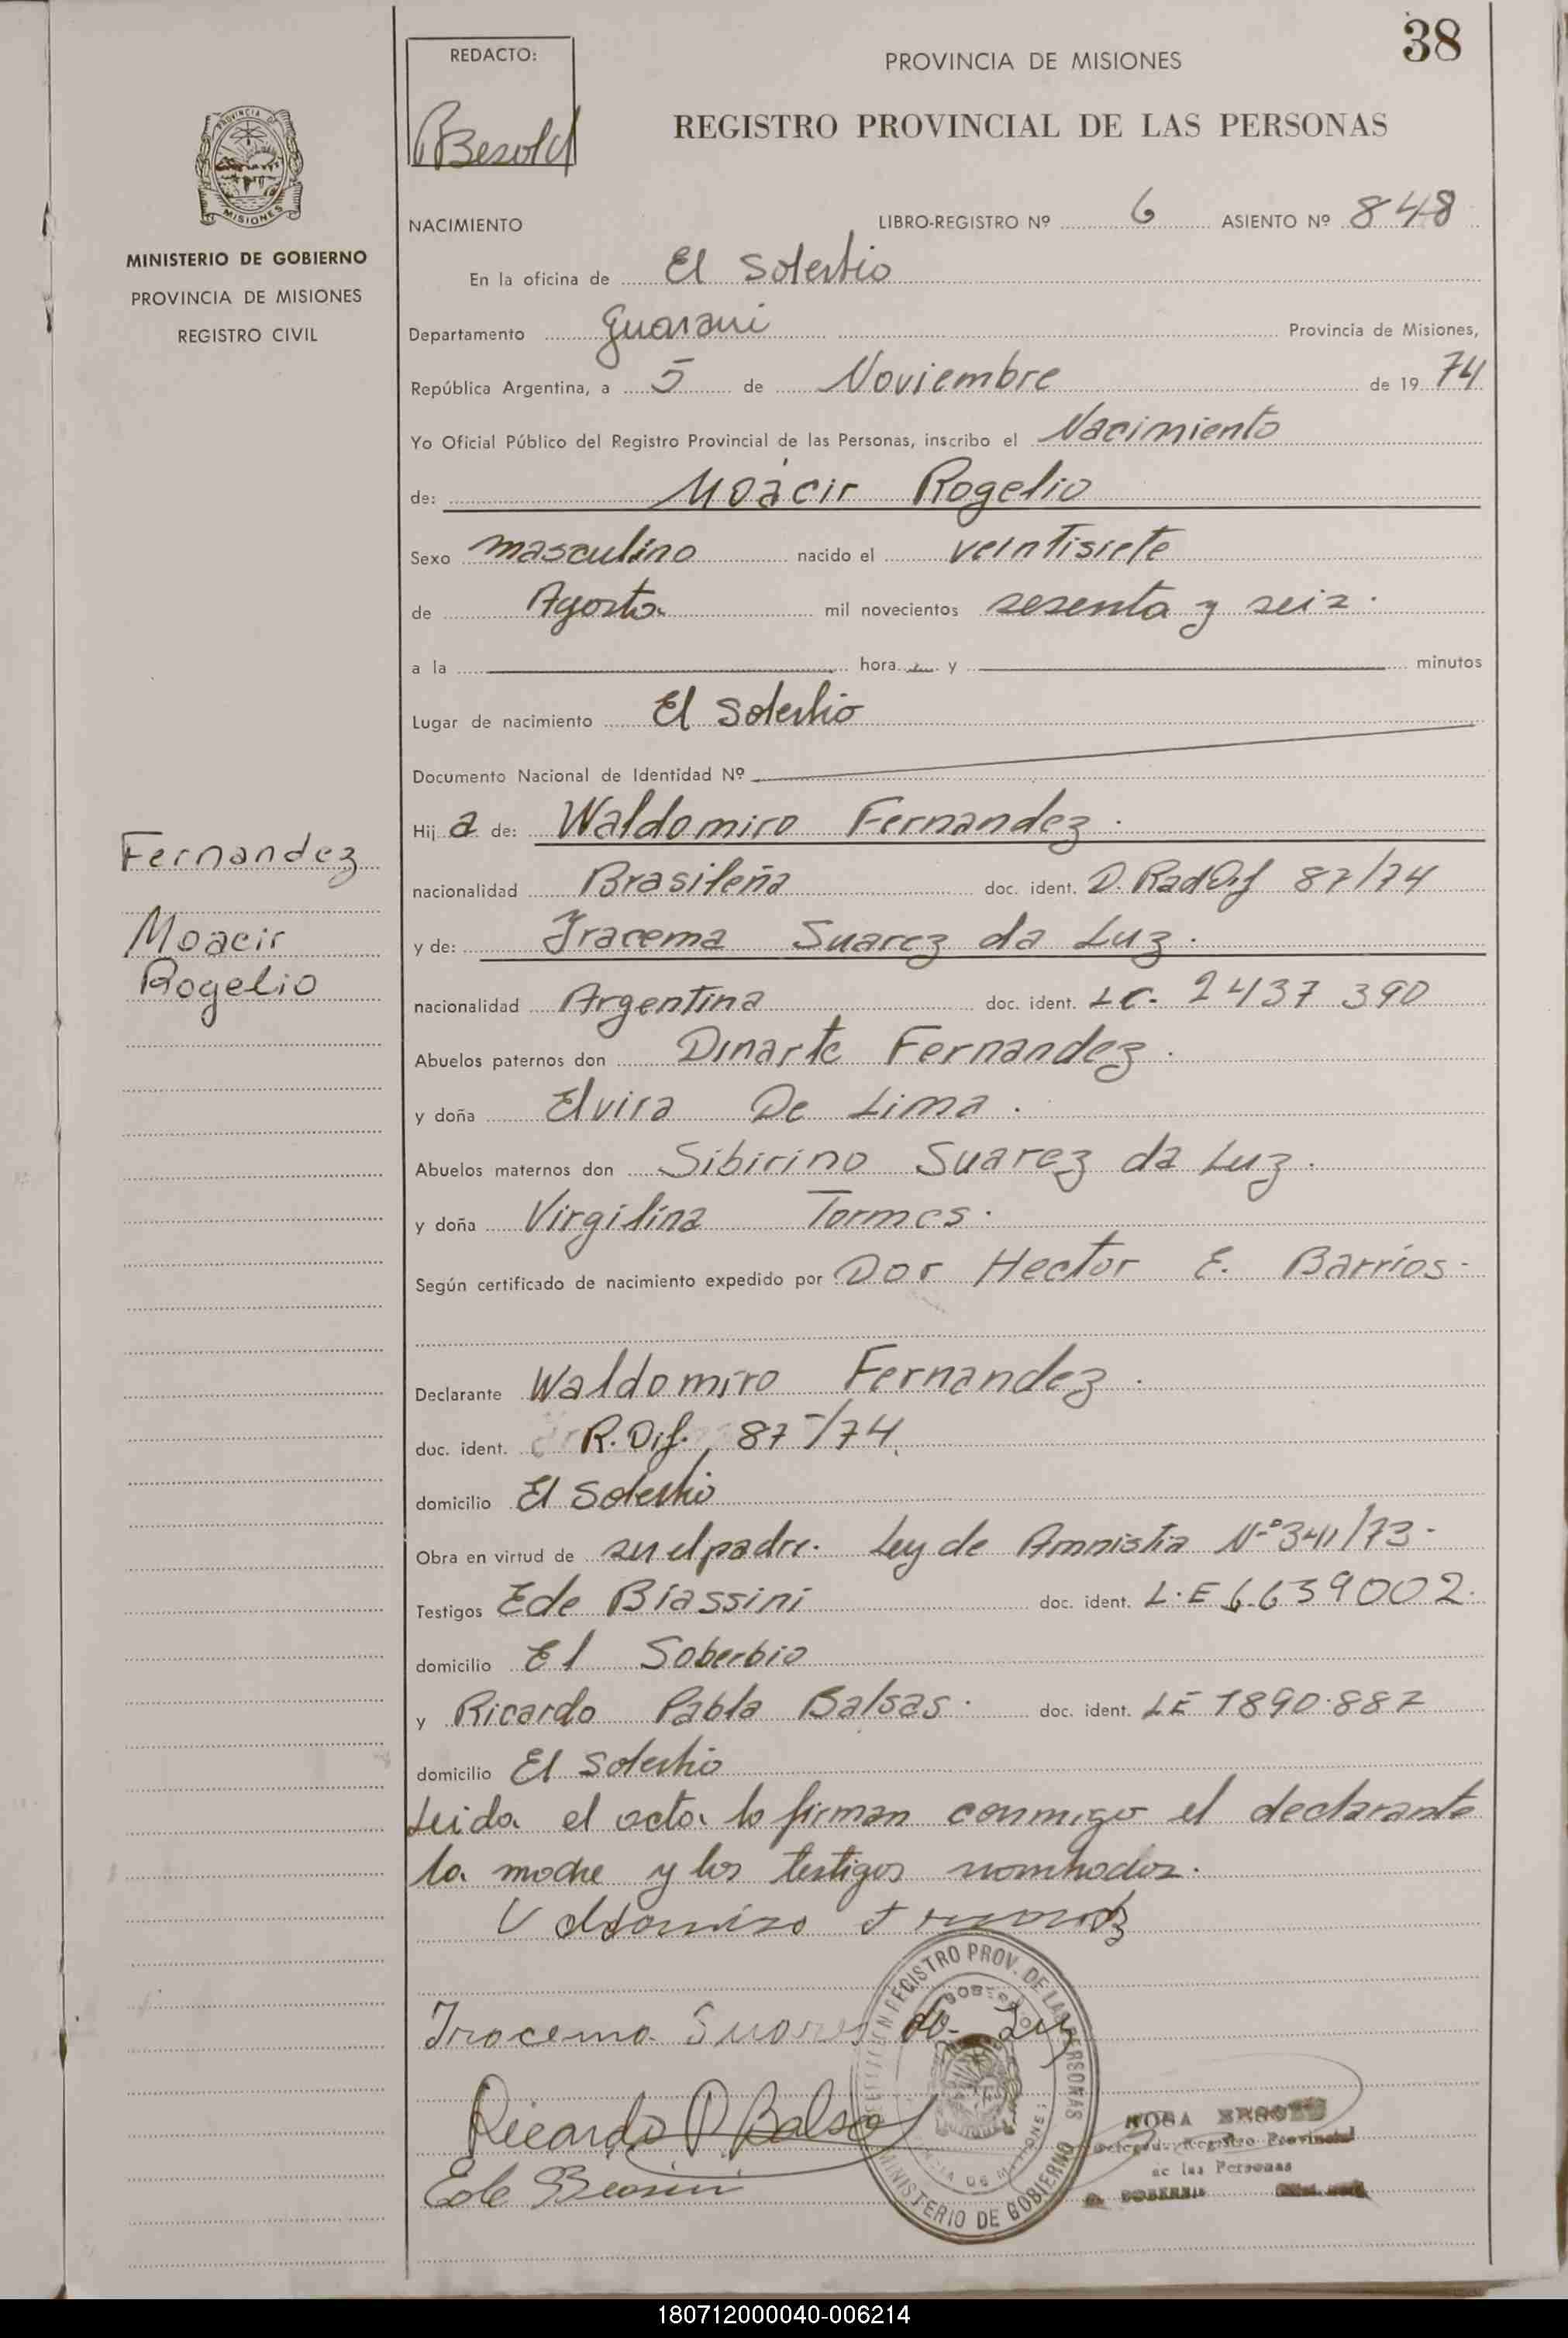 38
REDACTO:
PROVINCIA DE MISIONES
REGISTRO PROVINCIAL DE LAS PERSONAS
PROVINCIA DE
MISIONES
MINISTERIO DE GOBIERNO
PROVINCIA DE MISIONES
REGISTRO CIVIL
NACIMIENTO LIBRO-REGISTRO Nº 6 ASIENTO Nº 848
En la oficina de El Soberbio
Departamento Guarani Provincia de Misiones,
República Argentina, a 5 de Noviembre de 19 74
Yo Oficial Público del Registro Provincial de las Personas, inscribo el Nacimiento
de: Moacir Rogelio
Sexo masculino nacido el veintisiete
de Agosto mil novecientos sesenta y seis.
a la hora y minutos
Lugar de nacimiento El Soberbio
Documento Nacional de Identidad Nº
Hij a de: Waldomiro Fernandez.
nacionalidad Brasileña doc. ident. D. RadDif 87/74
y de: Iracema Suarez da Luz.
nacionalidad Argentina doc. ident. LC. 2437390
Abuelos paternos don Dinarte Fernandez.
y doña Elvira De Lima.
Abuelos maternos don Sibirino Suarez da Luz.
y doña Virgilina Tormes.
Según certificado de nacimiento expedido por Dor Hector E. Barrios-
Declarante Waldomiro Fernandez.
doc. ident. R. Dif. 87/74
domicilio El Soberbio
Obra en virtud de ser el padre. Ley de Amnistia Nº 341/73-
Testigos Ede Biassini doc. ident. L.E 6.639002.
domicilio El Soberbio
y Ricardo Pabla Balsas. doc. ident. LE 7890.887
domicilio El Soberbio
Leida el acta la firman conmigo el declarante
la madre y los testigos nombrados.
Fernandez
Moacir
Rogelio
Iracema Suares da Luz
Ricardo P. Balsa
REGISTRO PROV. DE LAS PERSONAS
MINISTERIO DE GOBIERNO
ROSA
Registro Provincial
de las Personas
180712000040-006214